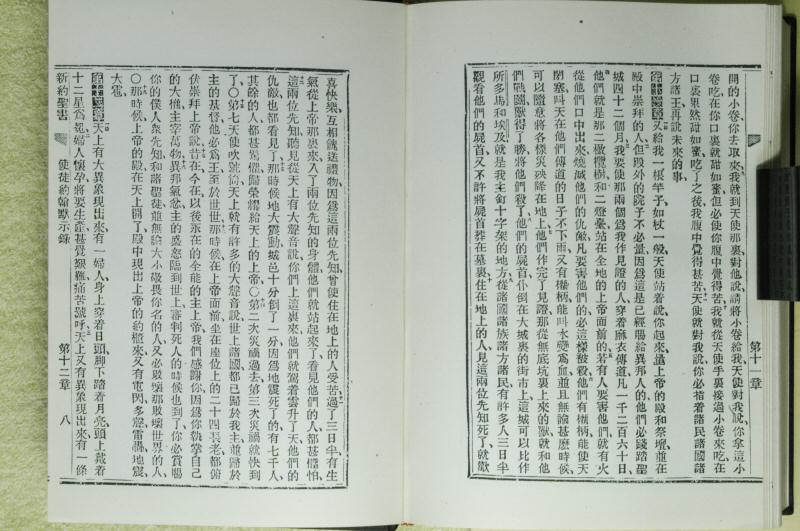 第十一章
開的小卷、你去取來、我就到天使那裏、對他說、請將小卷給我、天使對我說、你拿這小
卷吃在你口裏就甜如蜜、但必使你腹中覺得苦、我就從天使手裏接過小卷來吃在
口裏果然甜如蜜、吃了之後、我腹中覺得甚苦、天使就對我說、你必指着諸民諸國諸
方諸王再說未來的事
又給我一根竿子、如杖一般、天使站着說、你起來、量上帝的殿和祭壇、並在
殿中崇拜的人、但殿外的院子不必量、因爲這是已經賜給異邦人的、他們必踐踏聖
城四十二個月、我要使那兩個爲我作見證的人、穿着麻衣傳道、凡一千二百六十日、
他們就是那二橄欖樹和二燈臺、站在全地的上帝面前的、若有人要害他們、就有火
從他們口中出來、燒滅他們的仇敵、凡要害他們的、必這樣被殺、他們有權柄、能使天
閉塞、叫天在他們傳道的日子不下雨、又有權柄、能叫水變爲血、並且無論甚麽時候、
可以隨意將各樣災殃降在地上、他們作完了見證、那從無底坑裏上來的獸、就和他
們戰鬬、獸得了勝、將他們殺了、他們的屍首仆倒在大城裏的街市上、這城可以比作
所多馬和埃及、就是我主釘十字架的地方、從諸國諸族諸方諸民、有許多人三日半
觀看他們的屍首、又不許將屍首葬在墓裏、住在地上的人、見這兩位先知死了、就歡
喜快樂、互相餽送禮物、因爲這兩位先知、曾使住在地上的人受苦、過了三日半、有生
氣從上帝那裏來、入了兩位先知的身體、他們就站起來了、看見他們的人、都甚懼怕、
這兩位先知、聽見從天上有大聲音說、你們上這裏來、他們就駕着雲升了天、他們的
仇敵也都看見了、那時候、地大震動、城邑十分倒了一分、因爲地震死了的、有七千人、
其餘的人、都甚驚懼、歸榮耀給天上的上帝、〇第二次災禍過去、第三次災禍就快到
了〇第七天使吹號筒、天上就有許多的大聲音說、世上諸國、都已歸於我主、並歸於
主的基督、他必爲王、至於世世、那時候、在上帝面前坐在座位上的二十四長老、都俯
伏崇拜上帝、說、昔在今在以後永在的全能的主上帝、我們感謝你、因爲你執掌自己
的大權、主宰萬物、異邦氣忿、主的盛怒臨到世上、審判死人的時候也到了、你必賞賜
你的僕人衆先知和諸聖徒、並無論大小敬畏你名的人、又必敗壞那敗壞世界的人、
〇那時候、上帝的殿在天上開了、殿中現出上帝的約櫃來、又有電閃、多聲、雷轟、地震、
大雹、
天上有大異象現出來、有一婦人、身上穿着日頭、脚下踏着月亮、頭上戴着
十二星爲冕、婦人懷孕、將要生產、甚覺艱難痛苦號呼、天上又有異象現出來、有一條
新約聖書 使徒約翰默示錄 第十二章 八